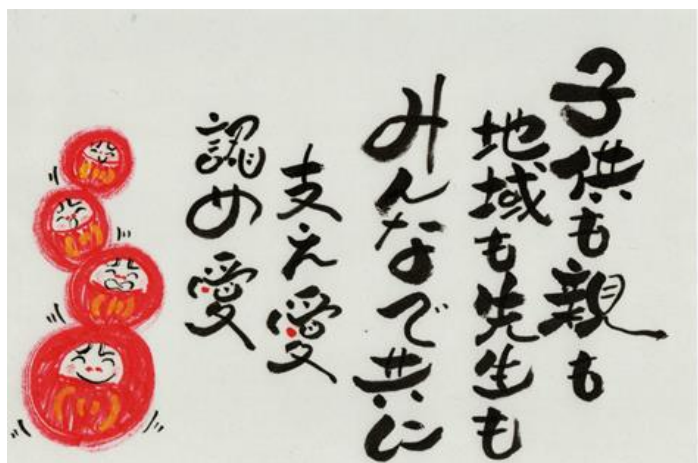 子供も親も
地域も先生も
みんなで共に
支え愛
認め愛